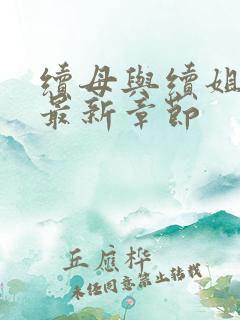 續母與續姐
最新章節
丘應樺
未经同意禁止转载